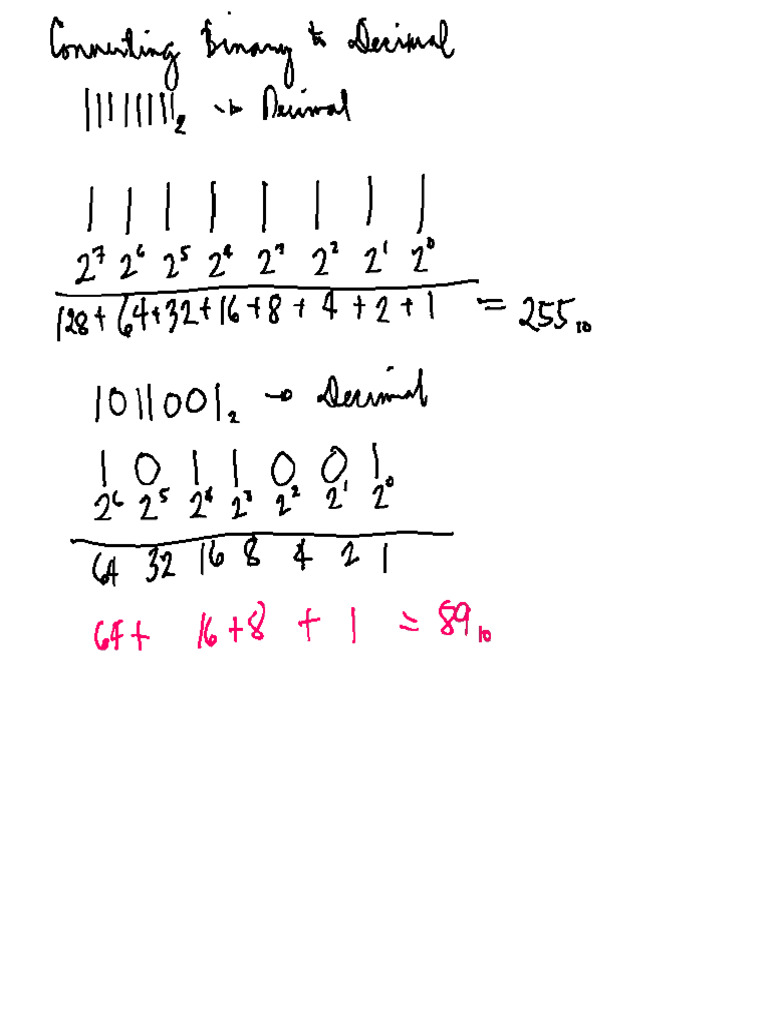 Converting Binary to Decimal
11111111₂ → Decimal
1 1 1 1 1 1 1 1
2⁷ 2⁶ 2⁵ 2⁴ 2³ 2² 2¹ 2⁰
128+ 64+32+16+8+ 4 +2 +1 = 255₁₀
1011001₂ → Decimal
1 0 1 1 0 0 1
2⁶ 2⁵ 2⁴ 2³ 2² 2¹ 2⁰
64 32 16 8 4 2 1
64+ 16+8 + 1 = 89₁₀